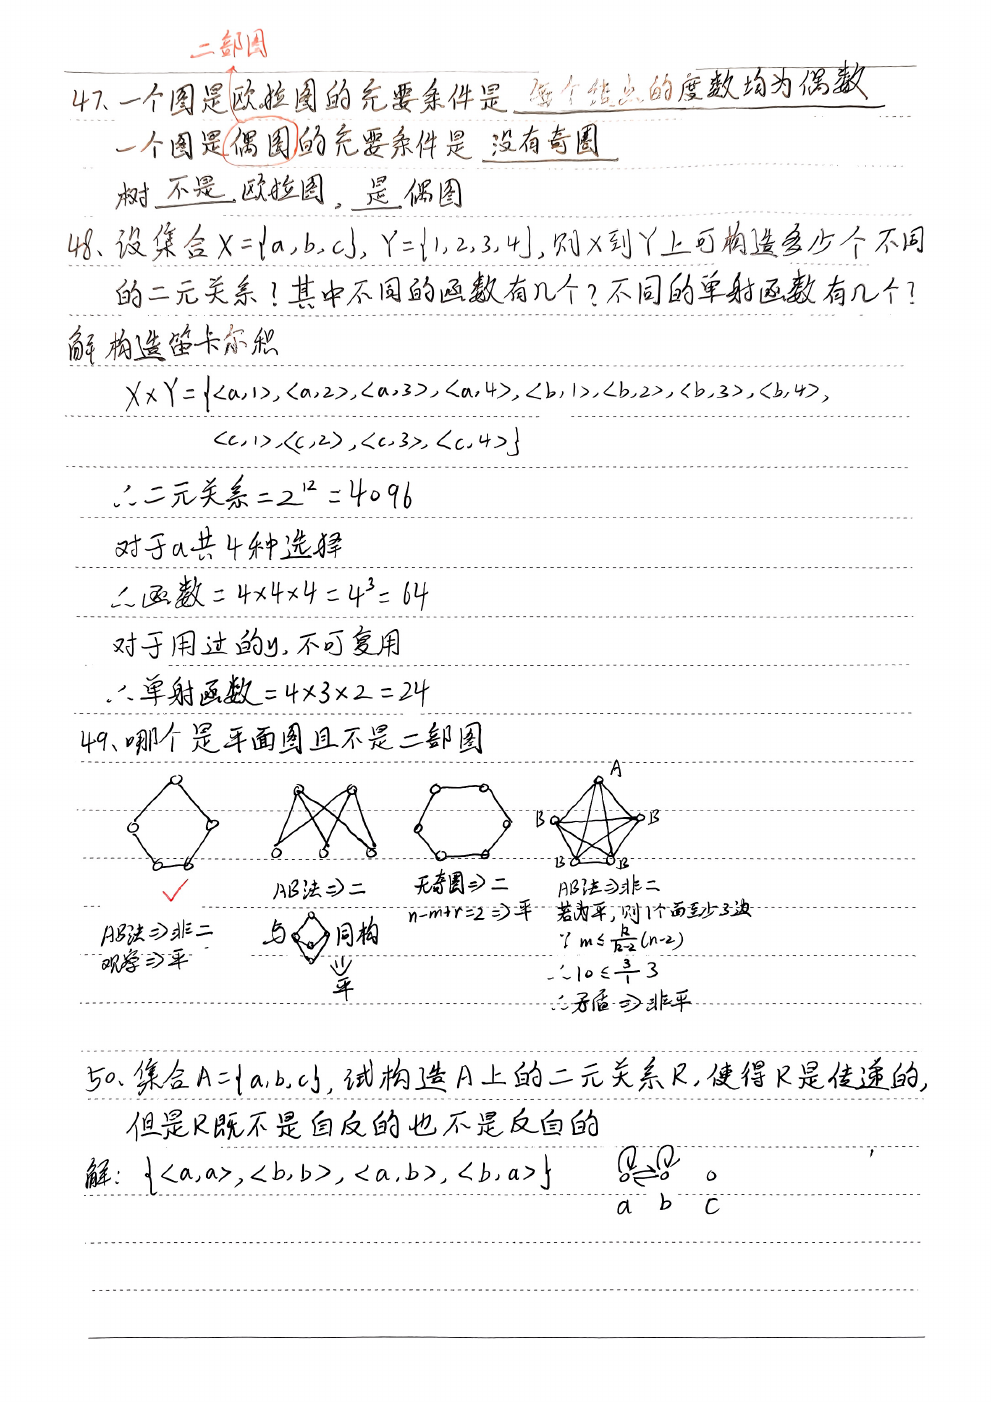 二部图
47、一个图是欧拉图的充要条件是 每个结点的度数均为偶数
一个图是偶图的充要条件是 没有奇圈
树 不是 欧拉图, 是 偶图
48、设集合X={a,b,c}, Y={1,2,3,4},则X到Y上可构造多少个不同
的二元关系?其中不同的函数有几个?不同的单射函数有几个?
解 构造笛卡尔积
X×Y={<a,1>,<a,2>,<a,3>,<a,4>,<b,1>,<b,2>,<b,3>,<b,4>,
<c,1>,<c,2>,<c,3>,<c,4>}
∴二元关系=2¹²=4096
对于a共4种选择
∴函数=4×4×4=4³=64
对于用过的y,不可复用
∴单射函数=4×3×2=24
49、哪个是平面图且不是二部图
A
B B
B B
✓
AB法⇒非二
观察⇒平
AB法⇒二
与 同构
⇓
平
无奇圈⇒二
n-m+r=2⇒平
AB法⇒非二
若为平,则1个面至少3边
∵ m≤k/(k-2)(n-2)
∴10≤3/1 3
∴矛盾⇒非平
50、集合A={a,b,c},试构造A上的二元关系R,使得R是传递的,
但是R既不是自反的也不是反自的
解: {<a,a>,<b,b>,<a,b>,<b,a>}
a b c